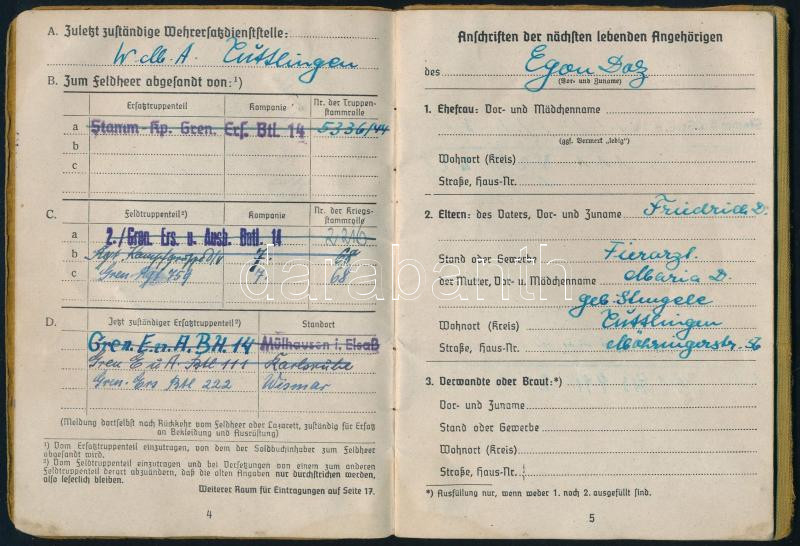 A. Zuletzt zuständige Wehrersatzdienststelle:
W.M.A. Tuttlingen
B. Zum Feldheer abgesandt von:¹)
Ersatztruppenteil Kompanie Nr. der Truppenstammrolle
a Stamm-Kp. Gren. Ers. Btl. 14 5336/44
b
c
C. Feldtruppenteil²) Kompanie Nr. der Kriegsstammrolle
a 2./Gren. Ers. u. Ausb. Batl. 14
b 7.
c Gren. Rgt. 759 7. 68
D. Jetzt zuständiger Ersatztruppenteil²) Standort
Gren. E. u. A. Btl. 14 Mülhausen i. Elsaß
Gren E u A Btl 111 Karlsruhe
Gren. Ers Btl 222 Wismar
(Meldung dortselbst nach Rückkehr vom Feldheer oder Lazarett, zuständig für Ersatz
an Bekleidung und Ausrüstung)
¹) Vom Ersatztruppenteil einzutragen, von dem der Soldbuchinhaber zum Feldheer
abgesandt wird.
²) Vom Feldtruppenteil einzutragen und bei Versetzungen von einem zum anderen
Feldtruppenteil derart abzuändern, daß die alten Angaben nur durchstrichen werden,
also leserlich bleiben.
Weiterer Raum für Eintragungen auf Seite 17.
4
Anschriften der nächsten lebenden Angehörigen
des Egon Dolz
(Vor- und Zuname)
1. Ehefrau: Vor- und Mädchenname
(ggf. Vermerk „ledig")
Wohnort (Kreis)
Straße, Haus-Nr.
2. Eltern: des Vaters, Vor- und Zuname Friedrich D.
Stand oder Gewerbe Tierarzt
der Mutter, Vor- u. Mädchenname Maria D.
geb. Stengele
Wohnort (Kreis) Tuttlingen
Straße, Haus-Nr. Möhringerstr.
3. Verwandte oder Braut:*)
Vor- und Zuname
Stand oder Gewerbe
Wohnort (Kreis)
Straße, Haus-Nr.
*) Ausfüllung nur, wenn weder 1. noch 2. ausgefüllt sind.
5
darabanth